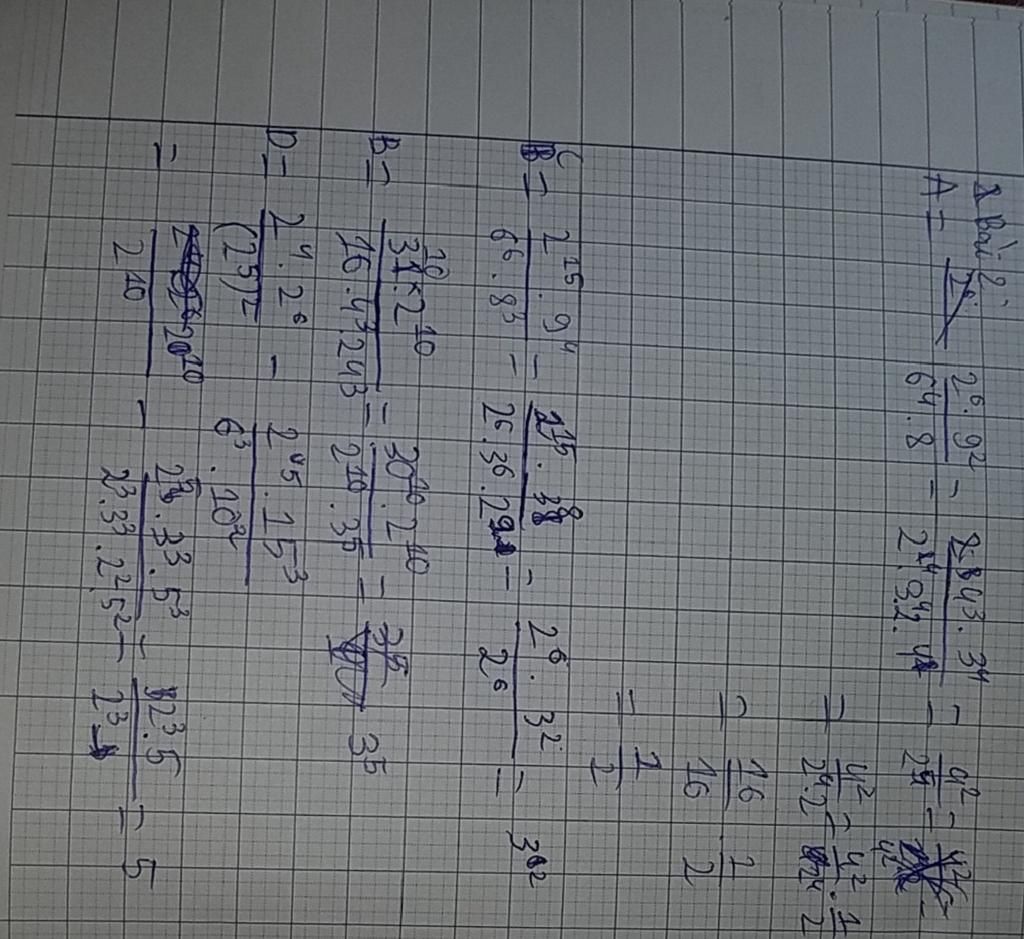 Bài 2:
A = 2⁶.9² / 6⁴.8 = 4³.3⁴ / 2⁴.3⁴.2.4 = 4² / 2⁵ =
= 4² / 2⁴.2 = 4² / 2⁴ . 1 / 2
= 16 / 16 . 1 / 2
= 1 / 2
C = 2¹⁵.9⁴ / 6⁶.8³ = 2¹⁵.3⁸ / 2⁶.3⁶.2⁹ = 2⁶.3² / 2⁶ = 3²
B = 3¹⁰.2¹⁰ / 16.4³.243 = 3¹⁰.2¹⁰ / 2¹⁰.3⁵ = 3⁵
D = 2⁴.2⁶ / (2⁵)² - 2⁵.15³ / 6³.10²
= 2¹⁰ / 2¹⁰ - 2⁵.3³.5³ / 2³.3³.2².5² = 2³.5 / 2³ = 5